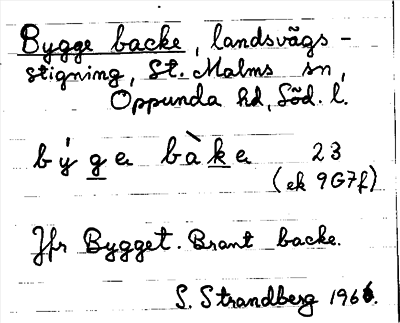 Bygge backe, landsvägs-
stigning, St. Malms sn,
Oppunda hd, Söd. l.
býge bàke 23
(ek 9G7f)
Jfr Bygget. Brant backe.
S. Strandberg 1966.